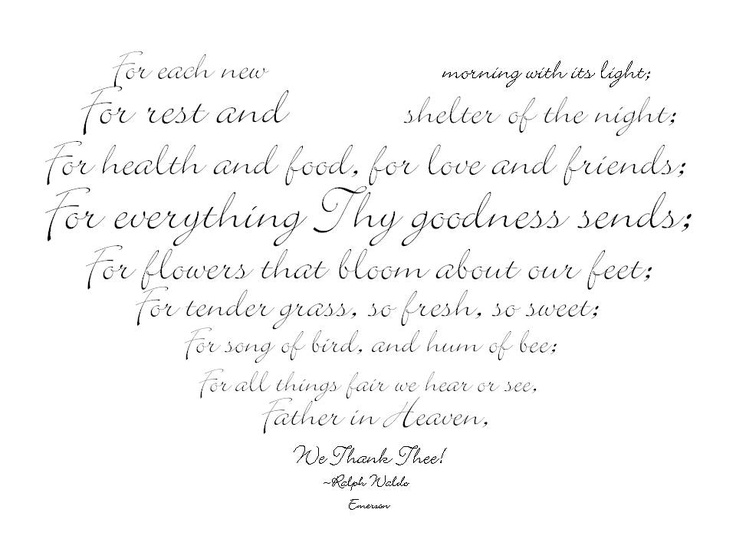 For each new morning with its light;
For rest and shelter of the night;
For health and food, for love and friends;
For everything Thy goodness sends;
For flowers that bloom about our feet;
For tender grass, so fresh, so sweet;
For song of bird, and hum of bee;
For all things fair we hear or see,
Father in Heaven,
We Thank Thee!
~Ralph Waldo
Emerson